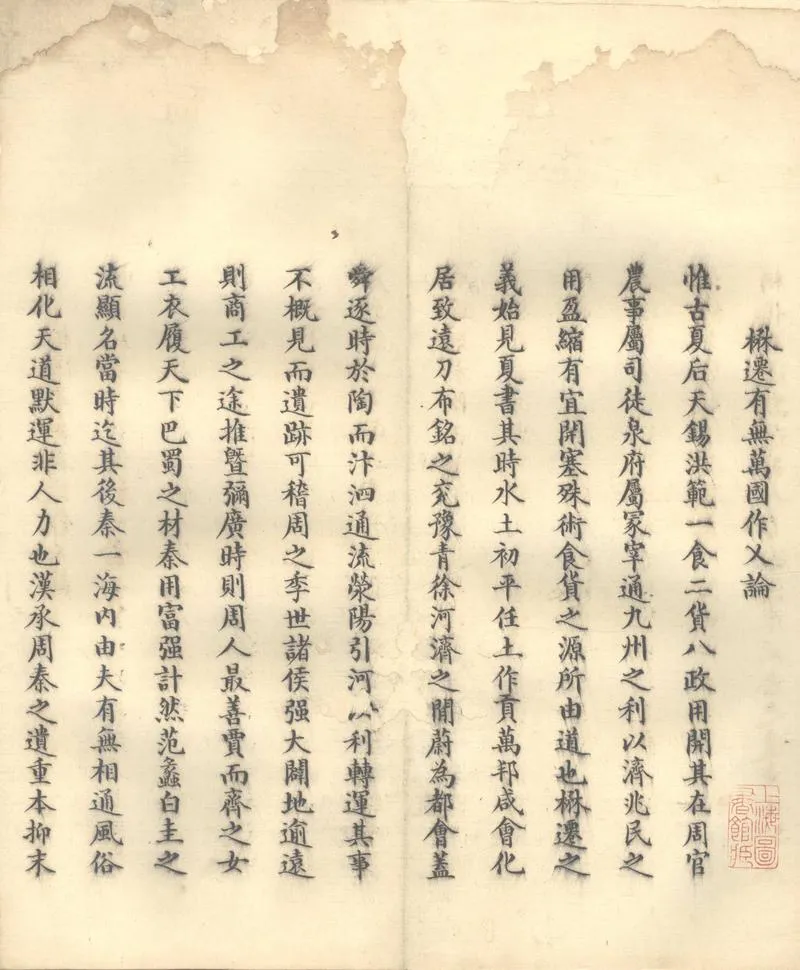 楙遷有無萬國作乂論
惟古夏后天錫洪範一食二貨八政用開其在周官
農事屬司徒泉府屬冢宰通九州之利以濟兆民之
用盈縮有宜開塞殊術食貨之源所由道也楙遷之
義始見夏書其時水土初平任土作貢萬邦咸會化
居致遠刀布銘之兖豫青徐河濟之閒蔚為都會蓋
舜逐時於陶而汴泗通流滎陽引河以利轉運其事
不概見而遺跡可稽周之季世諸侯强大闢地逾遠
則商工之途推暨彌廣時則周人最善賈而齊之女
工衣履天下巴蜀之材秦用富强計然范蠡白圭之
流顯名當時迄其後秦一海内由夫有無相通風俗
相化天道默運非人力也漢承周秦之遺重本抑末
上海圖書館藏